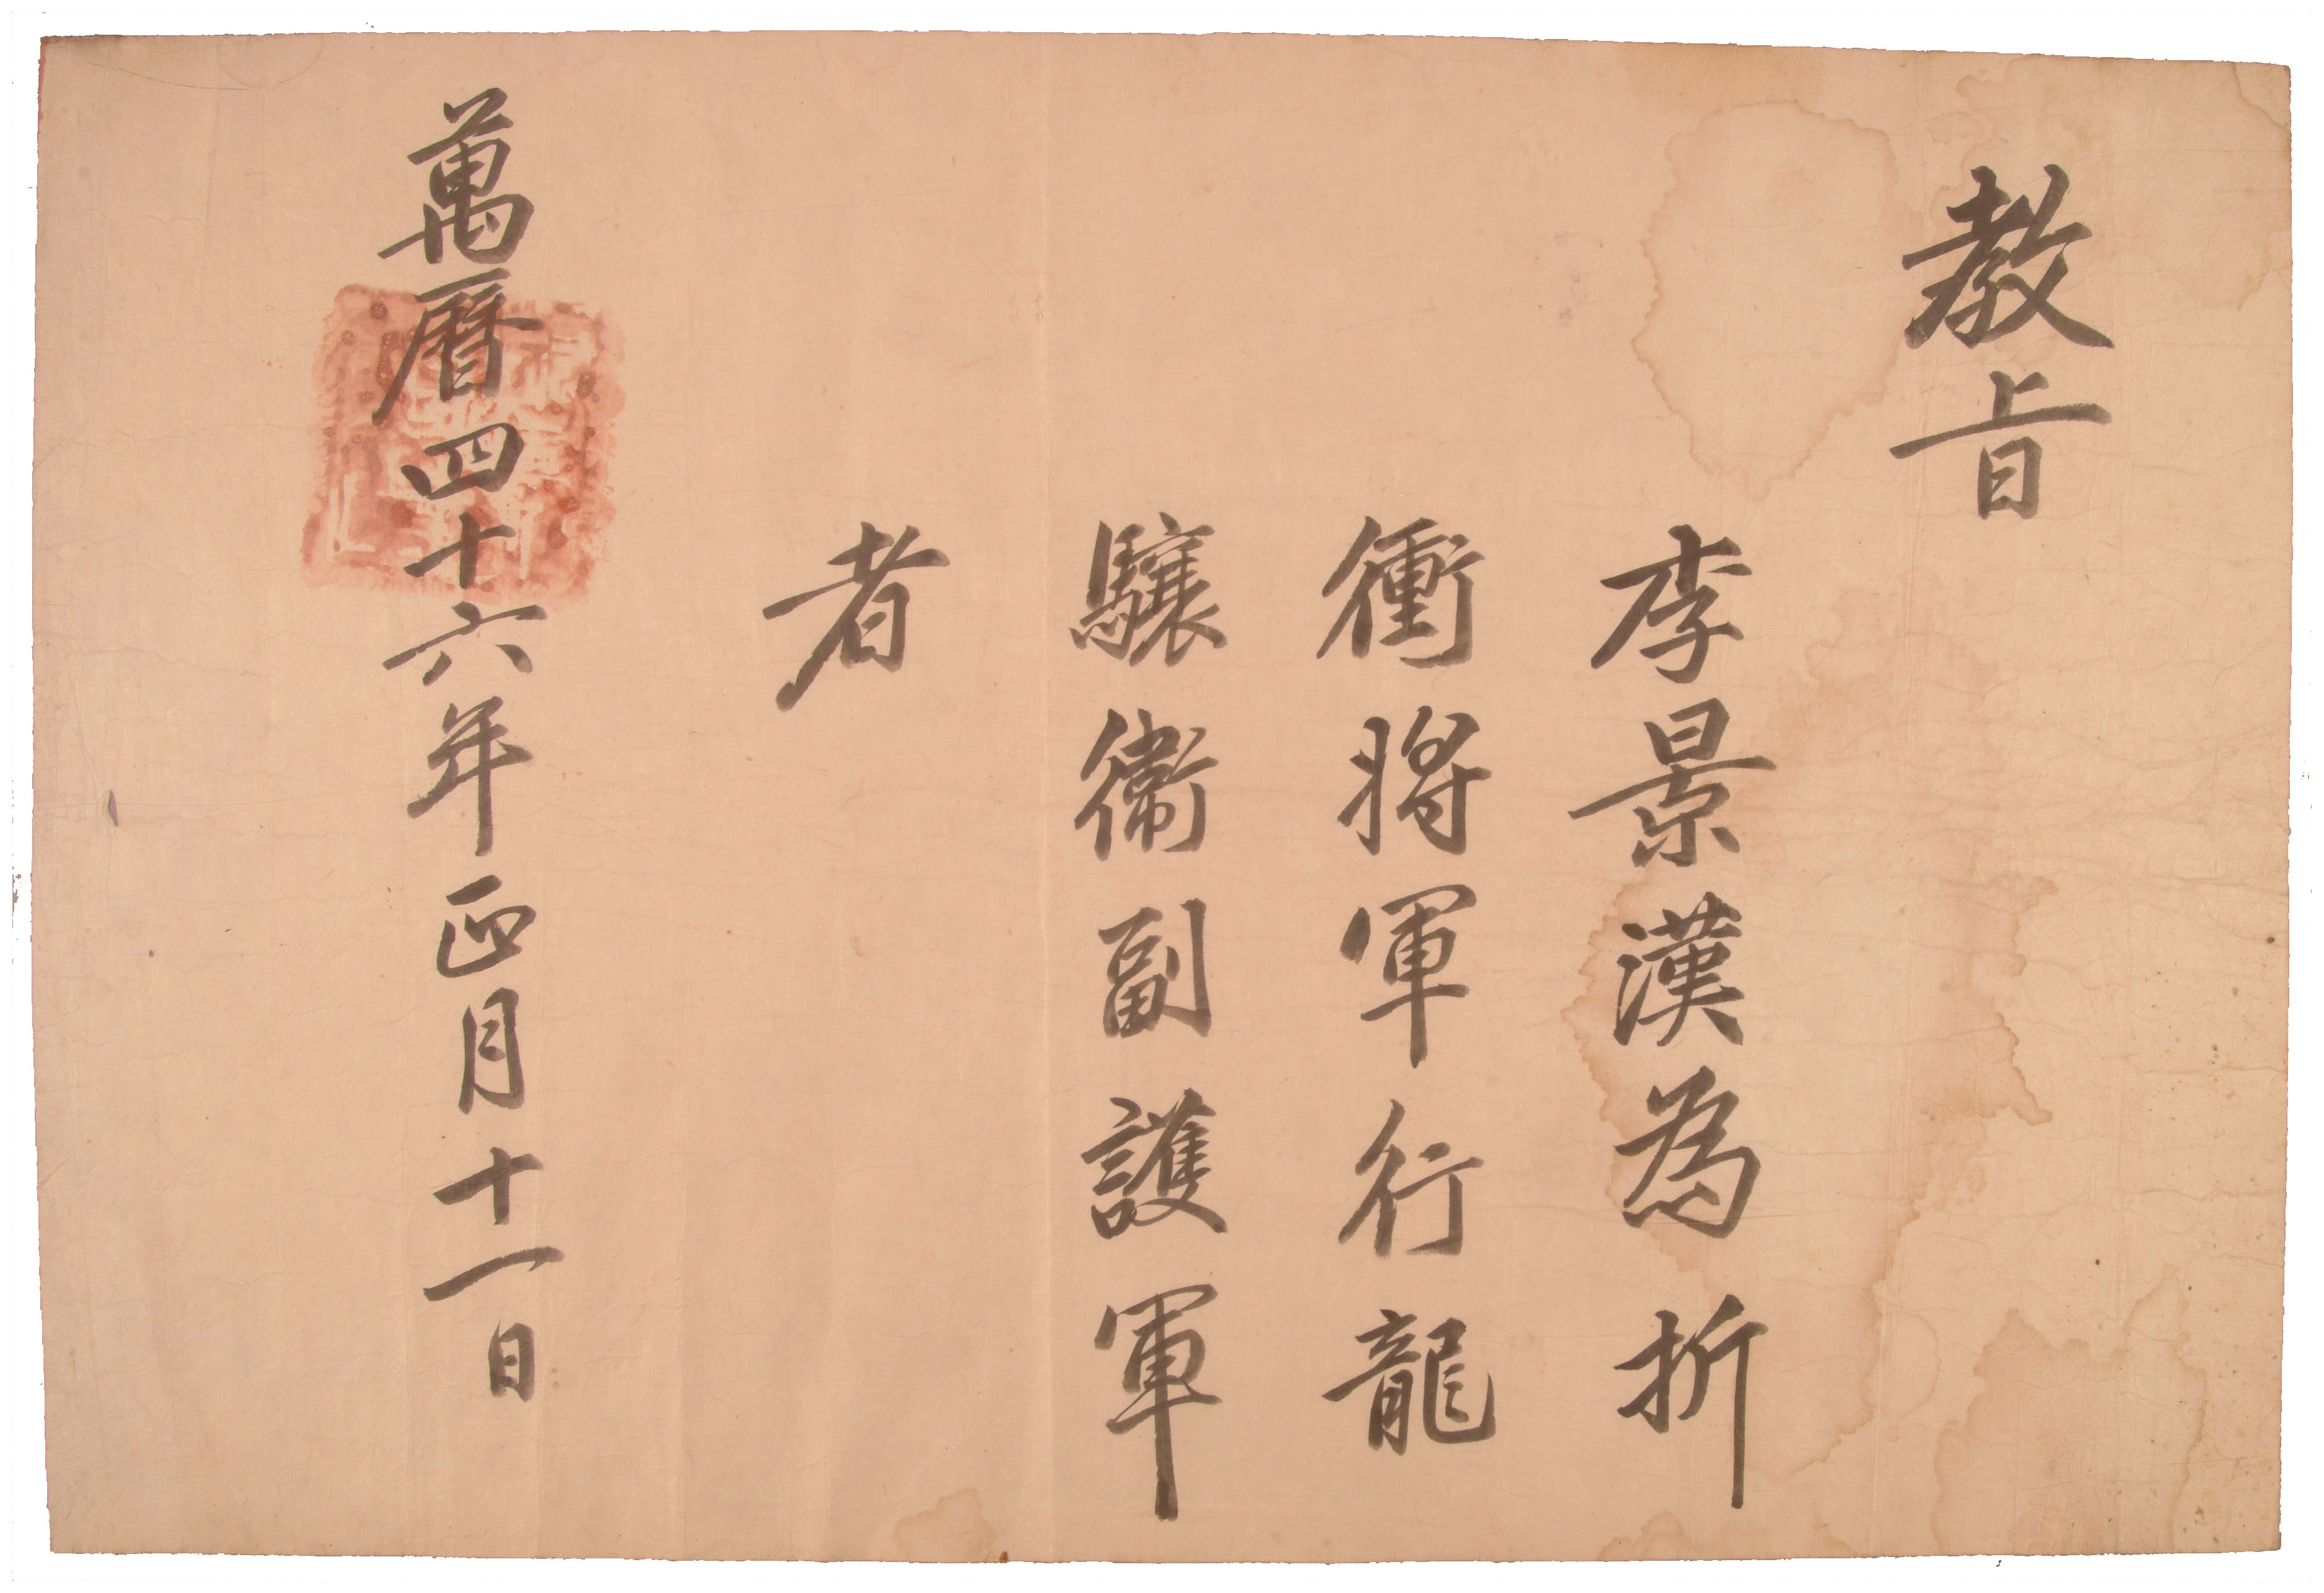 教旨
李景漢為折
衝將軍行龍
驤衛副護軍
者
萬曆四十六年正月十一日